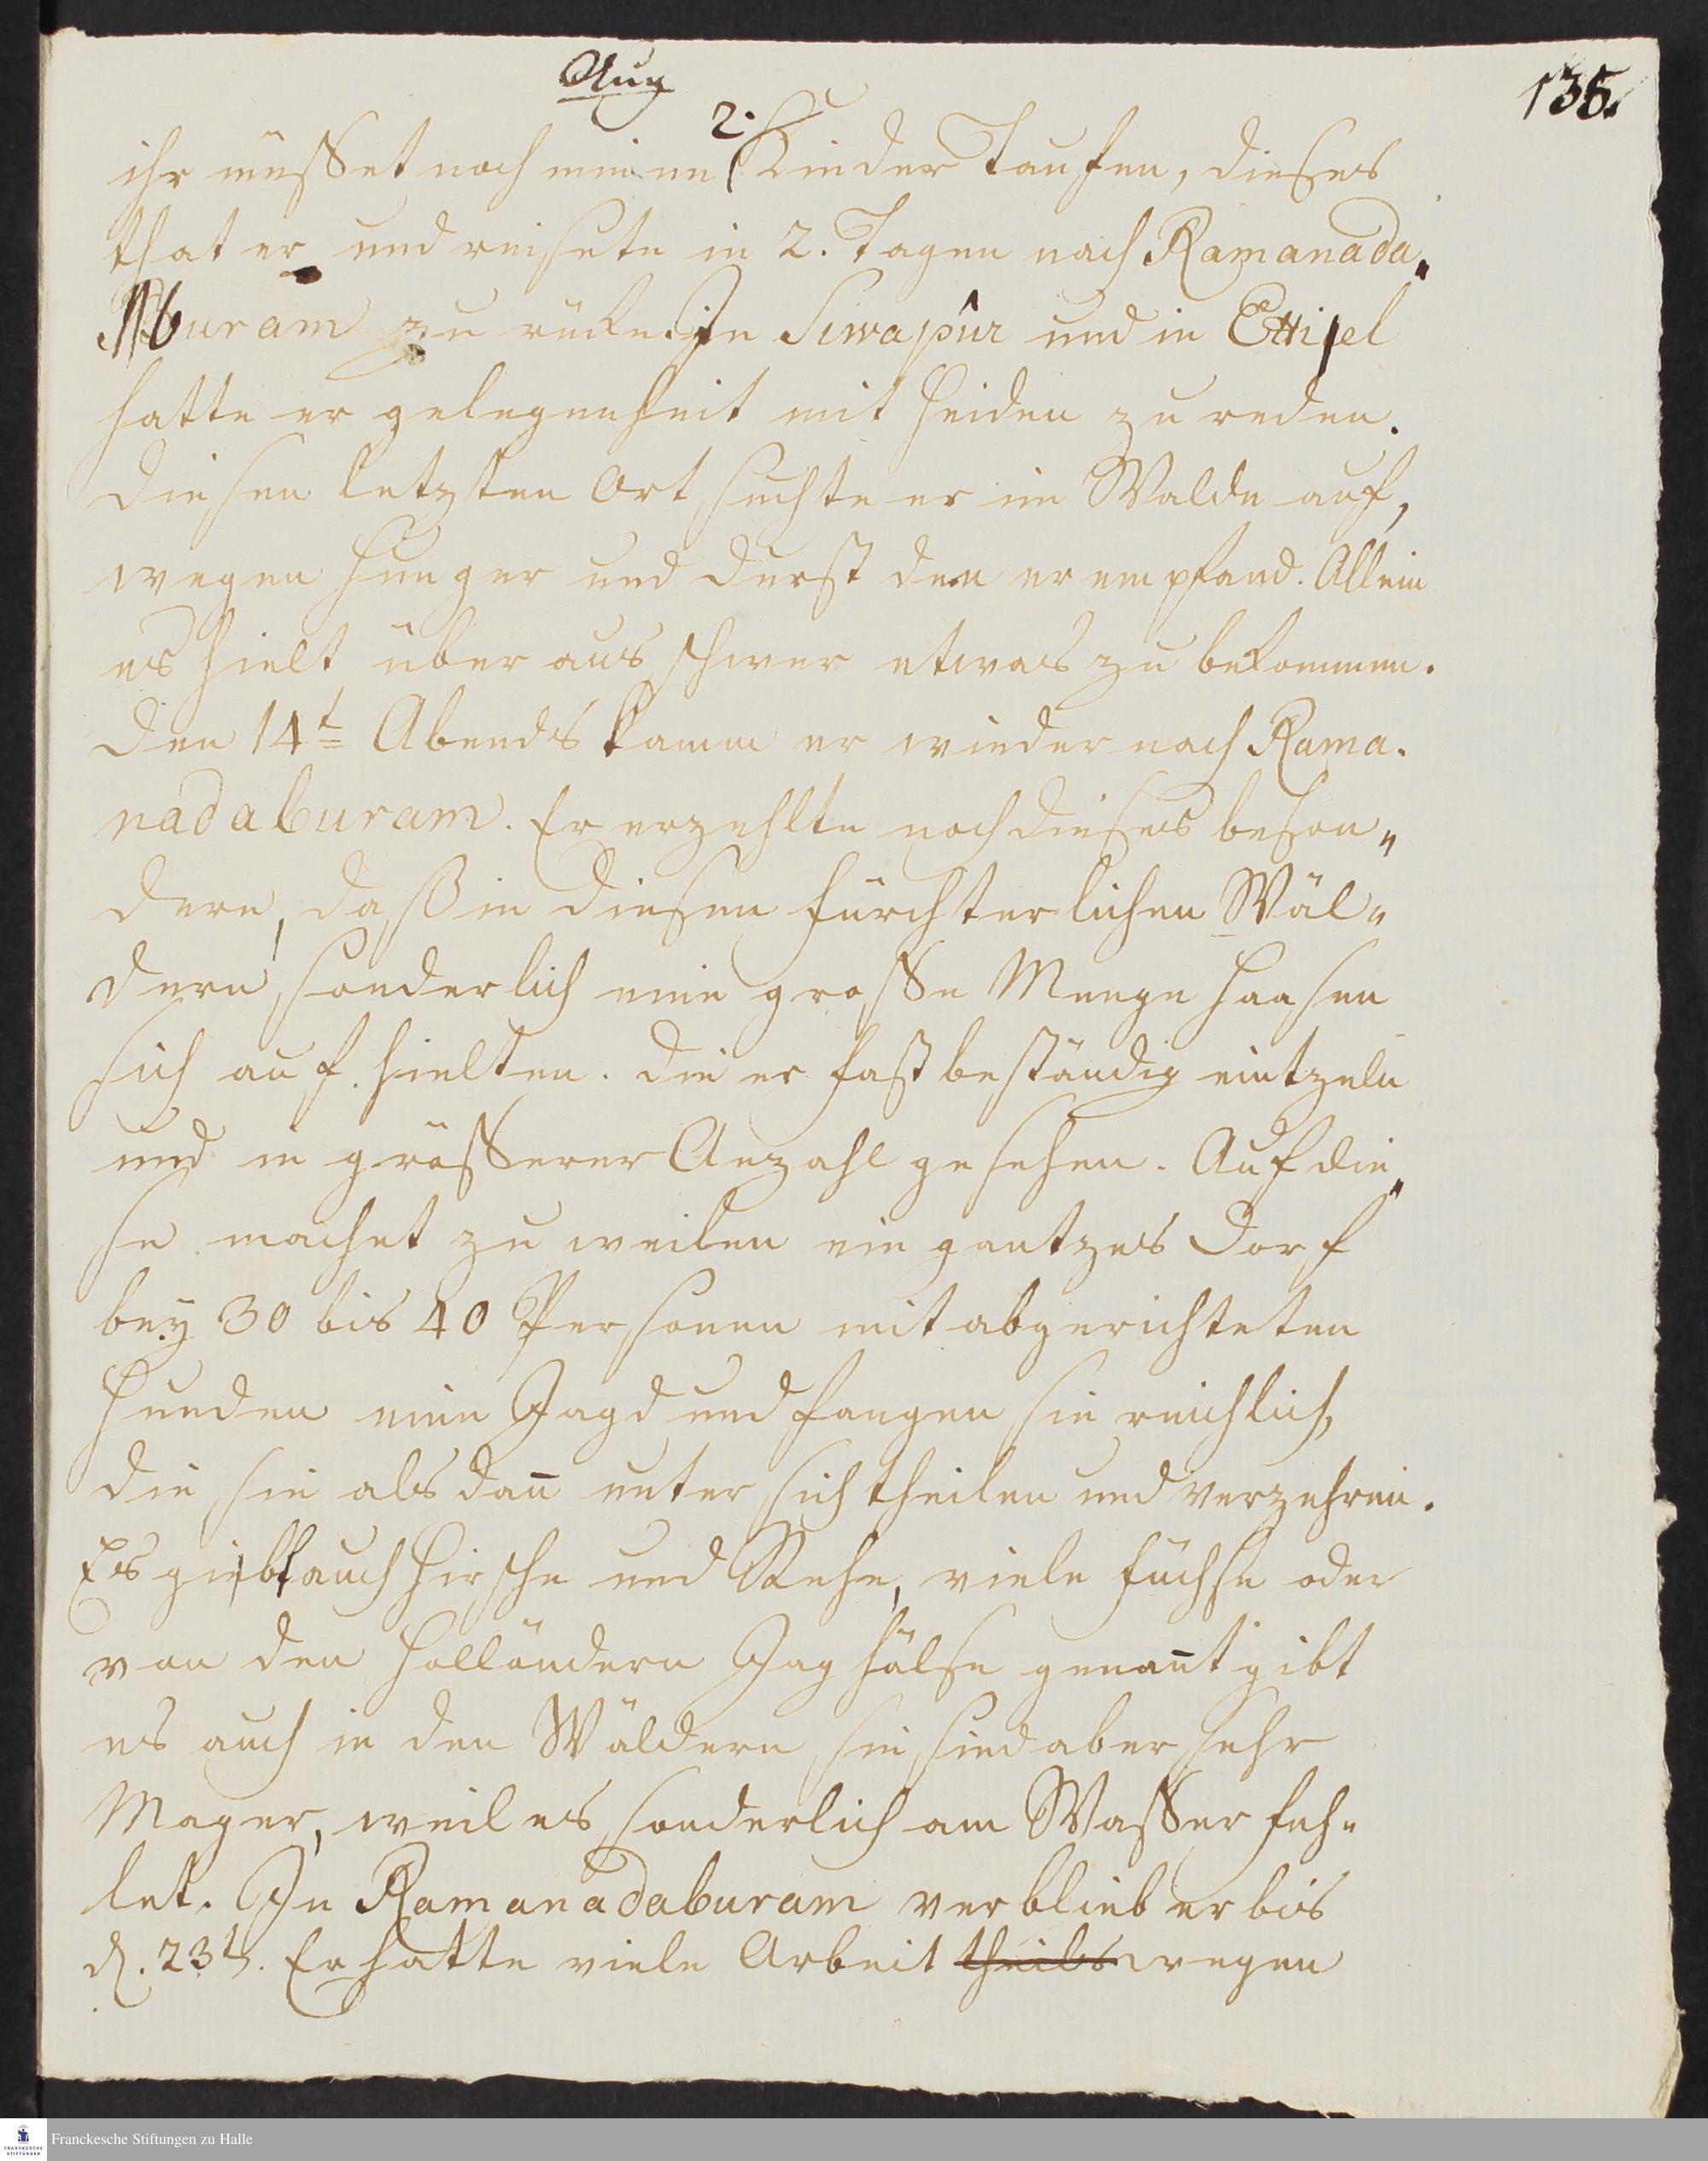 Aug
135.
ihr müsset noch meine 2. Kinder Taufen, dieses
that er und reisete in 2. Tagen nach Ramanada„
buram zu rücke. In Siwapûr und in Ettipel
hatte er gelegenheit mit Heiden zu reden.
Diesen letzten Ort suchte er im Walde auf,
wegen Hunger und Durst den er empfand. Allein
es hielt über aus schwer etwas zu bekommen.
Den 14t Abends kamm er wieder nach Rama.
nadaburam. Er erzehlte noch dieses beson„
dere, daß in diesen fürchterlichen Wäl„
dern, sonderlich eine grosse Menge Haasen
sich auf hielten. Die er fast beständig eintzeln
und in grösserer Anzahl gesehen. Auf die„
se machet zu weilen ein gantzes Dorf
bey 30 bis 40 Personen mit abgerichteten
Hunden eine Jagd und fangen sie reichlich,
die sie als dañ unter sich theilen und verzehren.
Es giebt auch Hirsche und Rehe, viele Füchse oder
von den Holländern Jaghälse genañt gibt
es auch in den Wäldern sie sind aber sehr
Mager, weil es sonderlich am Wasser feh„
let. In Ramanadaburam verblieb er bis
d. 23t. Er hatte viele Arbeit theils wegen
Franckesche Stiftungen zu Halle